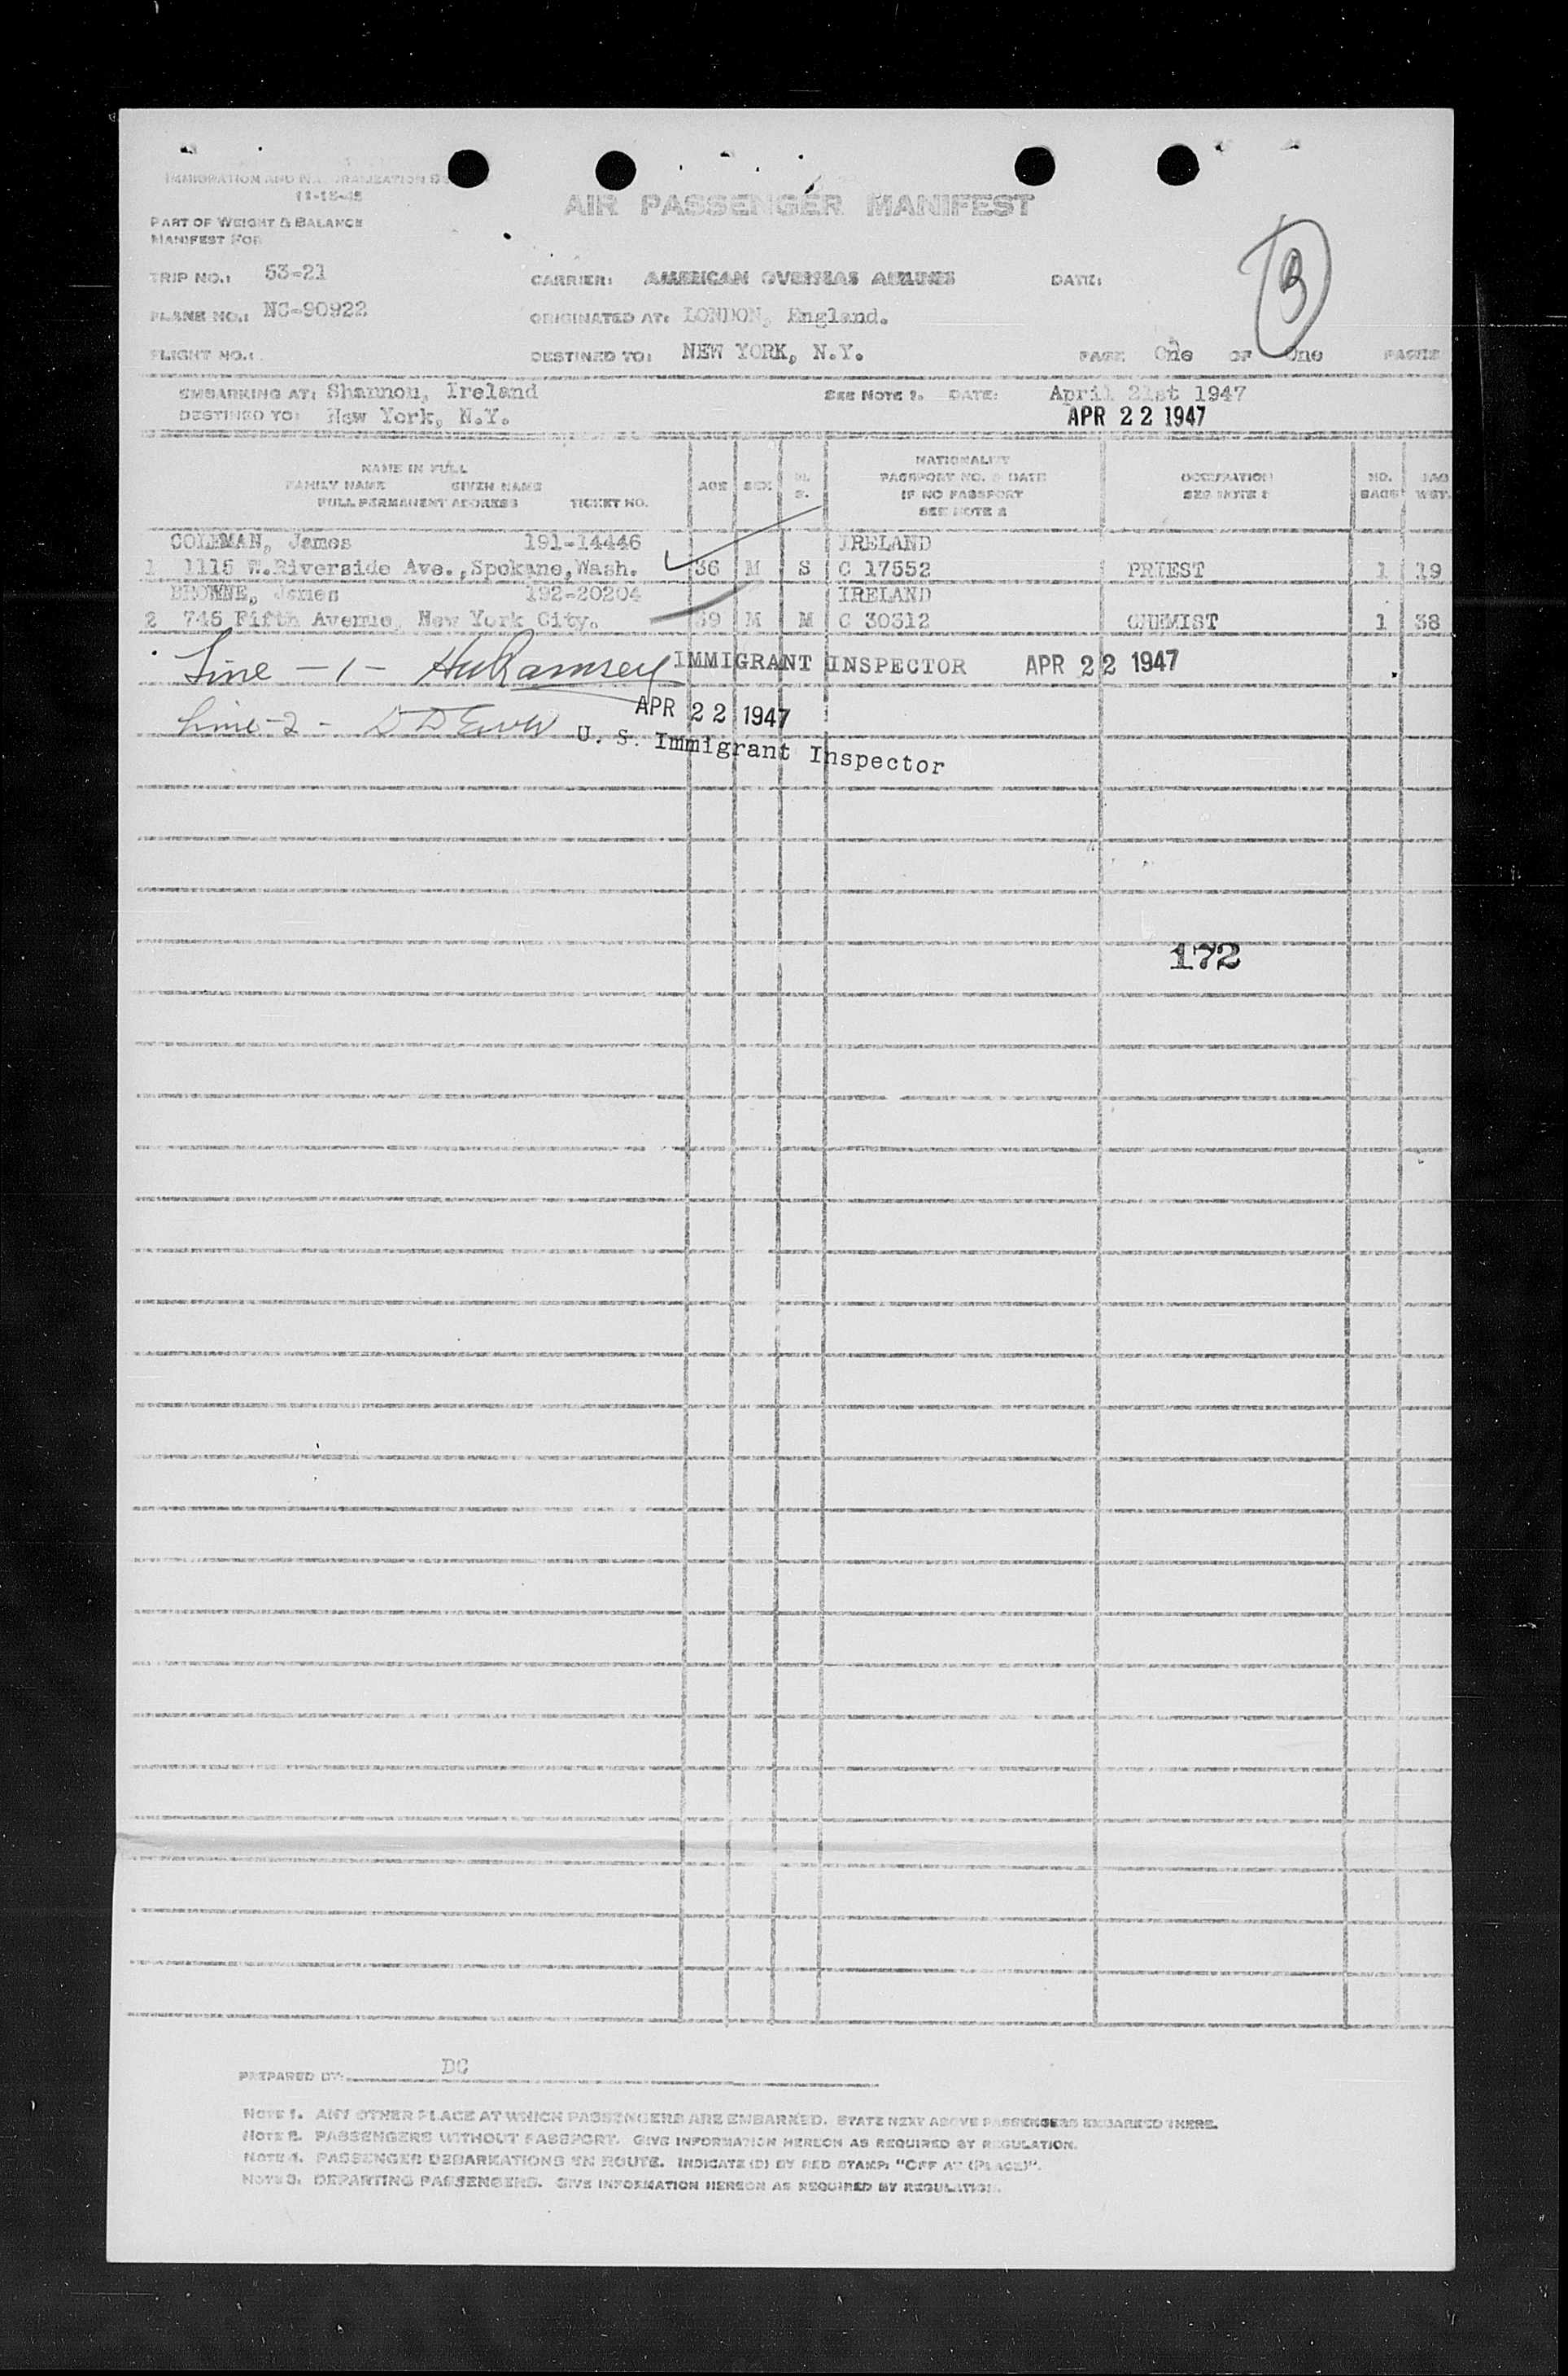 IMMIGRATION AND NATURALIZATION SE
11-15-45
AIR PASSENGER MANIFEST
PART OF WEIGHT & BALANCE
MANIFEST FOR
3
TRIP NO.: 53-21 CARRIER: AMERICAN OVERSEAS AIRLINES DATE:
PLANE NO.: NC-90922 ORIGINATED AT: LONDON, England.
FLIGHT NO.: DESTINED TO: NEW YORK, N.Y. PAGE One OF One PAGES
EMBARKING AT: Shannon, Ireland SEE NOTE 1. DATE: April 21st 1947
DESTINED TO: New York, N.Y. APR 22 1947
NAME IN FULL
FAMILY NAME GIVEN NAME
FULL PERMANENT ADDRESS TICKET NO.
AGE
SEX
M.
S.
NATIONALITY
PASSPORT NO. & DATE
IF NO PASSPORT
SEE NOTE 2
OCCUPATION
SEE NOTE 2
NO.
BAGS
BAG
WGT.
COLEMAN, James 191-14446 IRELAND
1 1115 W.Riverside Ave.,Spokane,Wash. 36 M S C 17552 PRIEST 1 19
BROWNE, James 192-20204 IRELAND
2 745 Fifth Avenue, New York City. 39 M M C 30312 CHEMIST 1 38
Line -1- Ramsey IMMIGRANT INSPECTOR APR 22 1947
Line-2- APR 22 1947
U. S. Immigrant Inspector
172
PREPARED BY: DC
NOTE 1. ANY OTHER PLACE AT WHICH PASSENGERS ARE EMBARKED. STATE NEXT ABOVE PASSENGERS EMBARKED THERE.
NOTE 2. PASSENGERS WITHOUT PASSPORT. GIVE INFORMATION HEREON AS REQUIRED BY REGULATION.
NOTE 4. PASSENGER DEBARKATIONS EN ROUTE. INDICATE (D) BY RED STAMP: "OFF AT (PLACE)".
NOTE 3. DEPARTING PASSENGERS. GIVE INFORMATION HEREON AS REQUIRED BY REGULATION.